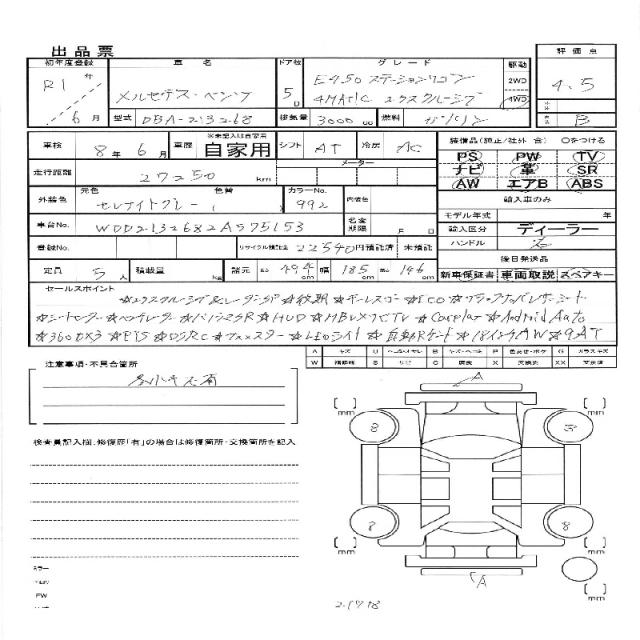 出品票
初年度登録 車名 ドア枚 グレード 駆動 評価点
R1年 メルセデス・ベンツ 5D E450 ステーションワゴン 2WD 4.5
6月 4MATIC エクスクルーシブ 4WD
型式 DBA-213268 排気量 3000cc 燃料 ガソリン B
※未記入は自家用 装備品(純正/社外 含) ○をつける
車検 8年6月 車歴 自家用 シフト AT 冷房 AC PS PW TV
走行距離 27250km メーター ナビ 革 SR
AW エアB ABS
外装色 元色 セレナイトグレー 色替 カラーNo. 992 内装色 輸入車のみ
モデル年式 年
車台No. WDD2132682A575153 名変期限 月 日 輸入区分 ディーラー
登録No. リサイクル預託金 22540円預託済 未預託 ハンドル 左
後日発送品
定員 5人 積載量 kg 諸元 長さ 494cm 幅 185cm 高さ 146cm 新車保証書 車両取説 スペアキー
セールスポイント
☆エクスクルーシブ&レーダーSP☆紋理☆キーレスゴー☆ECO☆ブラックナッパレザーシート
☆シートヒーター☆ベンチレーター☆パノラマSR☆HUD☆MBUXナビTV☆Carplay☆Android Auto
☆360°DX3☆PTS☆DSRC☆ブルメスター☆LEDライト☆自動Rゲート☆18インチAW☆9AT
注意事項・不具合箇所
A キズ U W B P G S C X XX
小キズ有
検査員記入欄:修復歴「有」の場合は修復箇所・交換箇所を記入
A
mm mm
8 5
7 8
mm mm
A
ミラー
PW